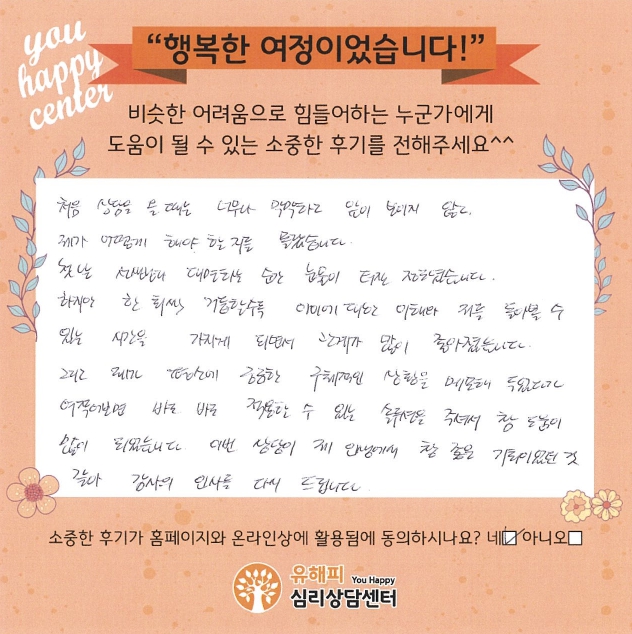 you
happy
center
“행복한 여정이었습니다!”
비슷한 어려움으로 힘들어하는 누군가에게
도움이 될 수 있는 소중한 후기를 전해주세요^^
처음 상담을 올 때는 너무나 막막하고 앞이 보이지 않고,
제가 어떻게 해야 할 지를 몰랐습니다.
첫날 선생님과 대면하는 순간 눈물이 터져
하지만 한 회씩 거듭할수록 이해와 저를 돌아볼 수
있는 시간을 가지게 되면서 관계가 많이 좋아졌습니다.
그리고 제가 궁금한 구체적인 상황을 메모해 두었다가
여쭤어보면 바로 바로 적용할 수 있는 솔루션을 주셔서 참 도움이
많이 되었습니다. 이번 상담이 제 인생에서 참 좋은 기회이었던 것
같아 감사의 인사를 다시 드립니다.
소중한 후기가 홈페이지와 온라인상에 활용됨에 동의하시나요? 네 아니오
유해피 You Happy
심리상담센터